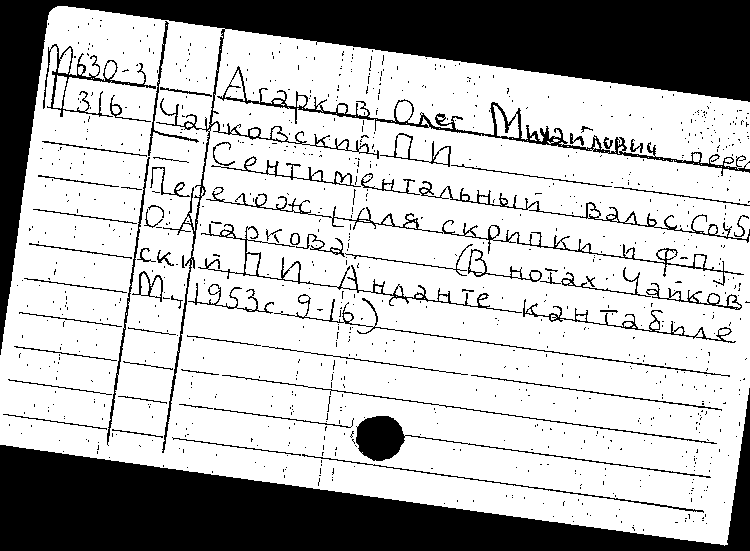 М630-3 Агарков Олег Михайлович перел
П316 Чайковский, П.И.
Сентиментальный вальс. Соч51
Перелож. [для скрипки и ф-п.]
О. Агаркова. (В нотах: Чайков-
ский, П.И. Анданте кантабиле
М., 1953 с. 9-16.)